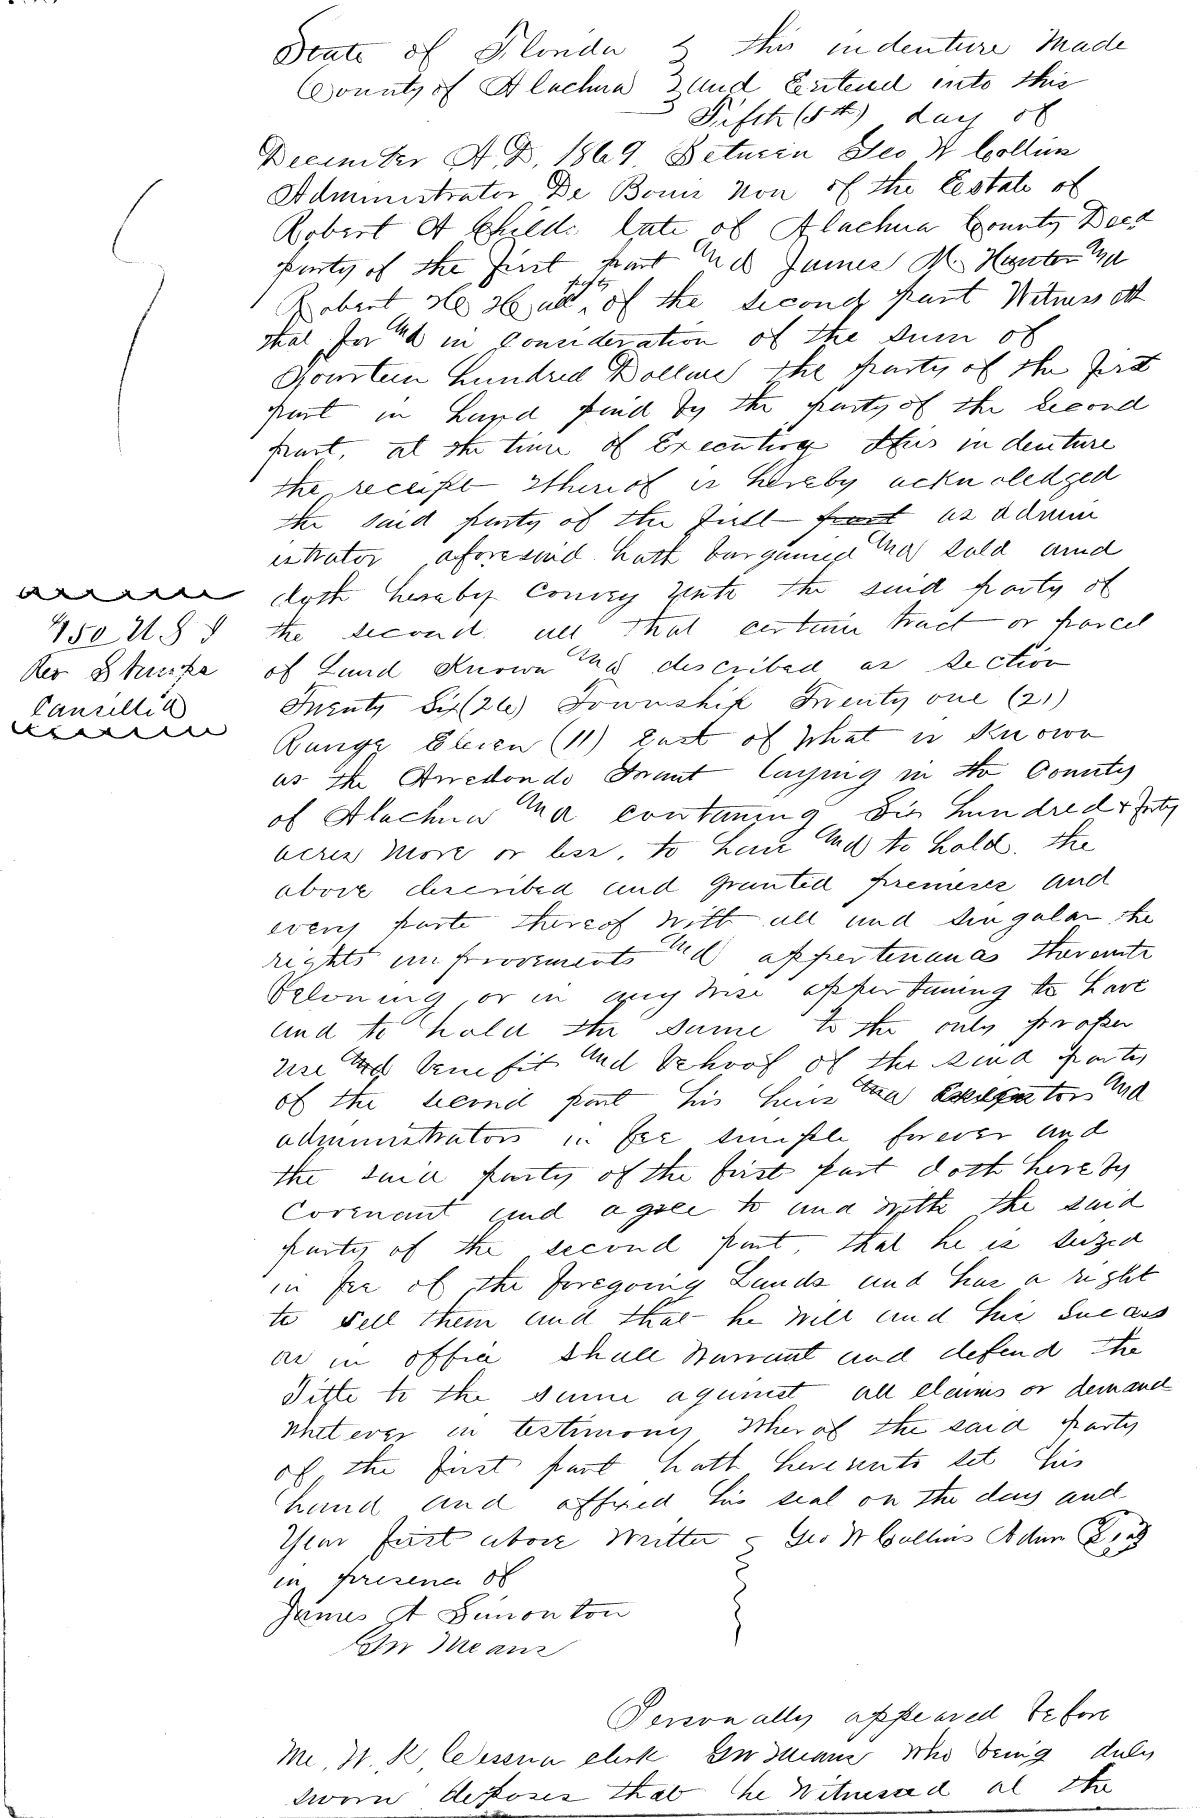 State of Florida } this indenture Made
County of Alachua } and Entered into this
Fifth (5th) day of
December A.D. 1869. Between Geo W Collins
Administrator De Bonis Non of the Eestate of
Robert A Childs late of Alachua County Decd
party of the first part and James M. Hunter and
Robert H Hall, party of the second part Witnesseth
that for and in Consideration of the sum of
Fourteen hundred Dollars the party of the first
part in hand paid by the party of the Second
part. at the time of Execution this indenture
the receipt whereof is hereby acknoledged
the said party of the first part as admin
istrator aforesaid hath bargained and sold and
doth hereby Convey unto the said party of
the second. all that certain tract or parcel
of Land Known and described as Section
Twenty Six (26) Township Twenty one (21)
Range Eleven (11) East of what is Known
as the Arredondo Grant laying in the County
of Alachua and containing Six hundred & forty
acres More or less. to have and to hold. the
above described and granted premises and
every parte thereof with all and singular the
rights improvements and appertenances thereunto
Beloning or in any wise appertaining to have
and to hold the same to the only proper
use and benefit and behoof of the said party
of the second part his heirs and and
administrators in fee simple forever and
the said party of the first part doth hereby
Covenant and agree to and with the said
party of the second part, that he is seized
in fee of the foregoing Lands and has a right
to sell them and that he will and his Success
or in office shall warrant and defend the
Title to the same against all claims or demand
whatever in testimony wherof the said party
of the first part hath hereunto set his
hand and affixed his seal on the day and
Year first above Written } Geo W Collins Admr Seal
in presence of
James A Simonton
Means
$1.50 U.S.I
Rev Stamps
Cancilled
Personally appeared before
Me, W. K. Cessna clerk Means Who being duly
sworn deposes that he Witnessed at the